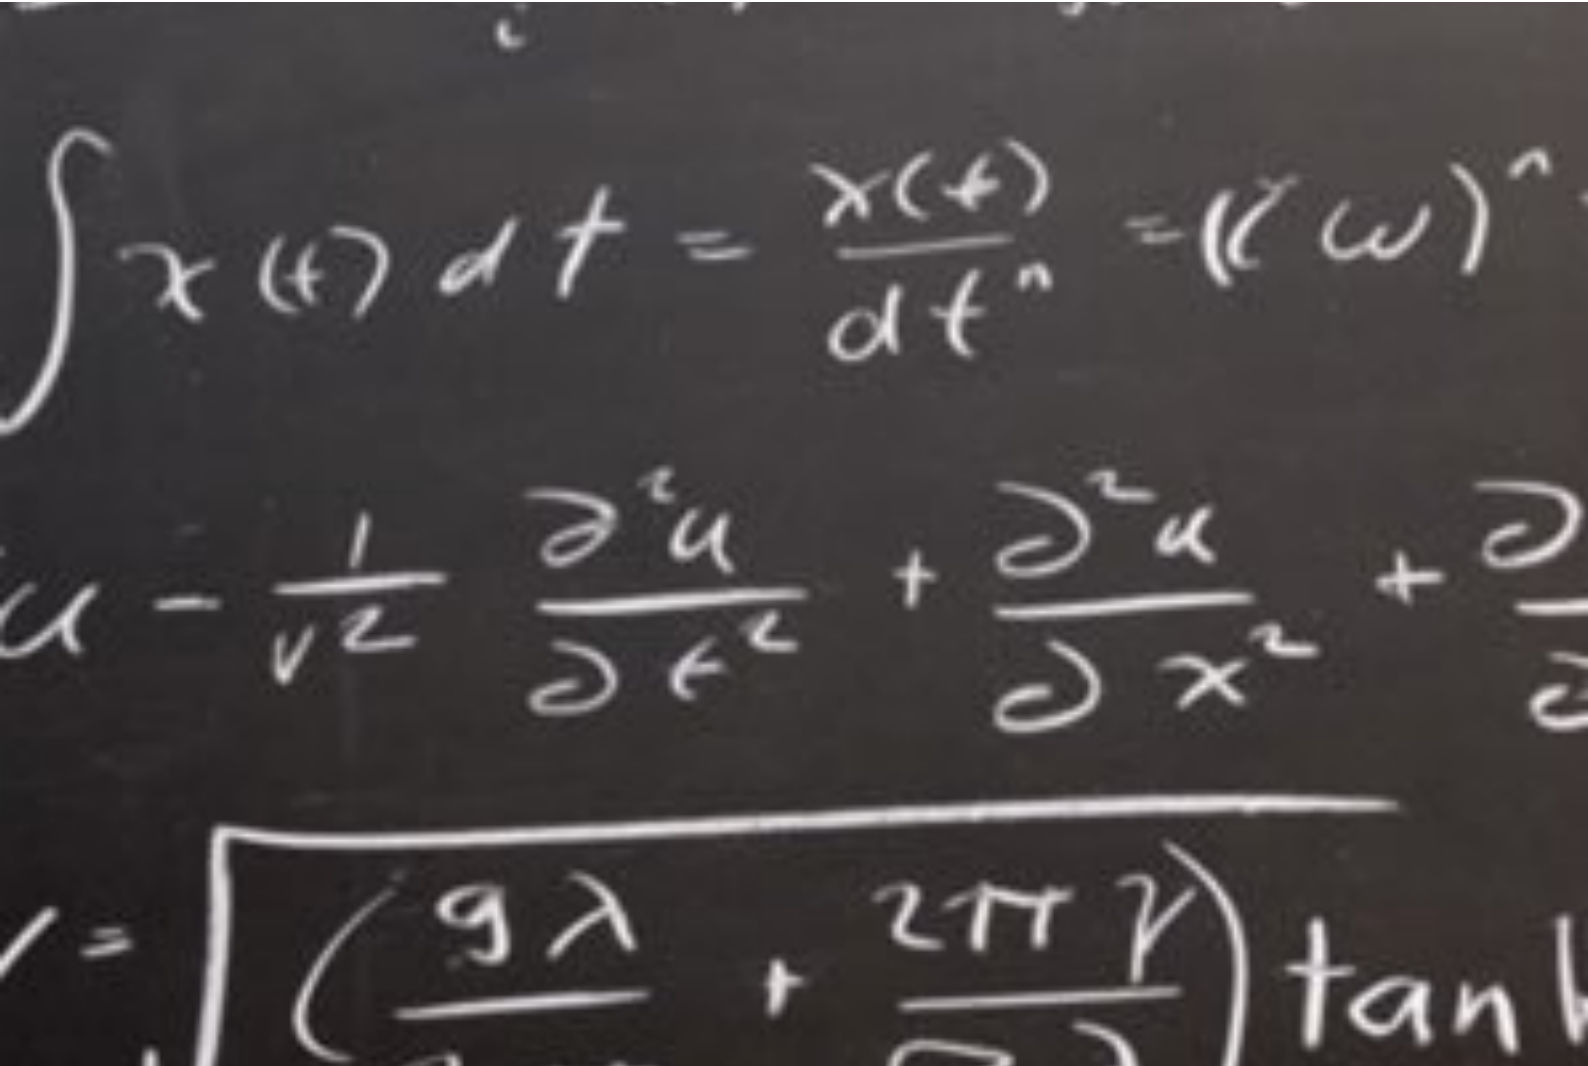 ∫ x(t) dt = x(t)/dtⁿ = ((ω)ⁿ
u - 1/v² ∂²u/∂t² + ∂²u/∂x² + ∂
v = √(gλ + 2πγ) tanh